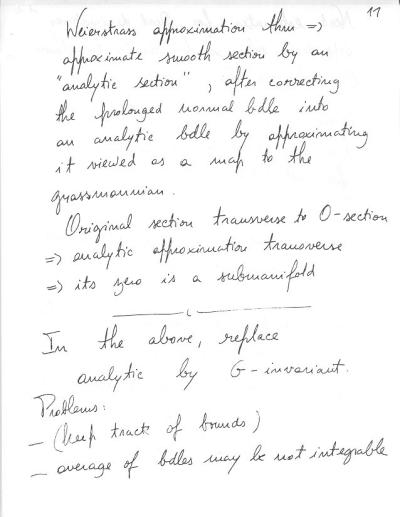 11
Weierstrass approximation thm =>
approximate smooth section by an
"analytic section", after correcting
the prolonged normal bdle into
an analytic bdle by approximating
it viewed as a map to the
grassmannian.
Original section transverse to O-section
=> analytic approximation transverse
=> its zero is a submanifold
In the above, replace
analytic by G-invariant.
Problems:
- (keep track of bounds)
- average of bdles may be not integrable